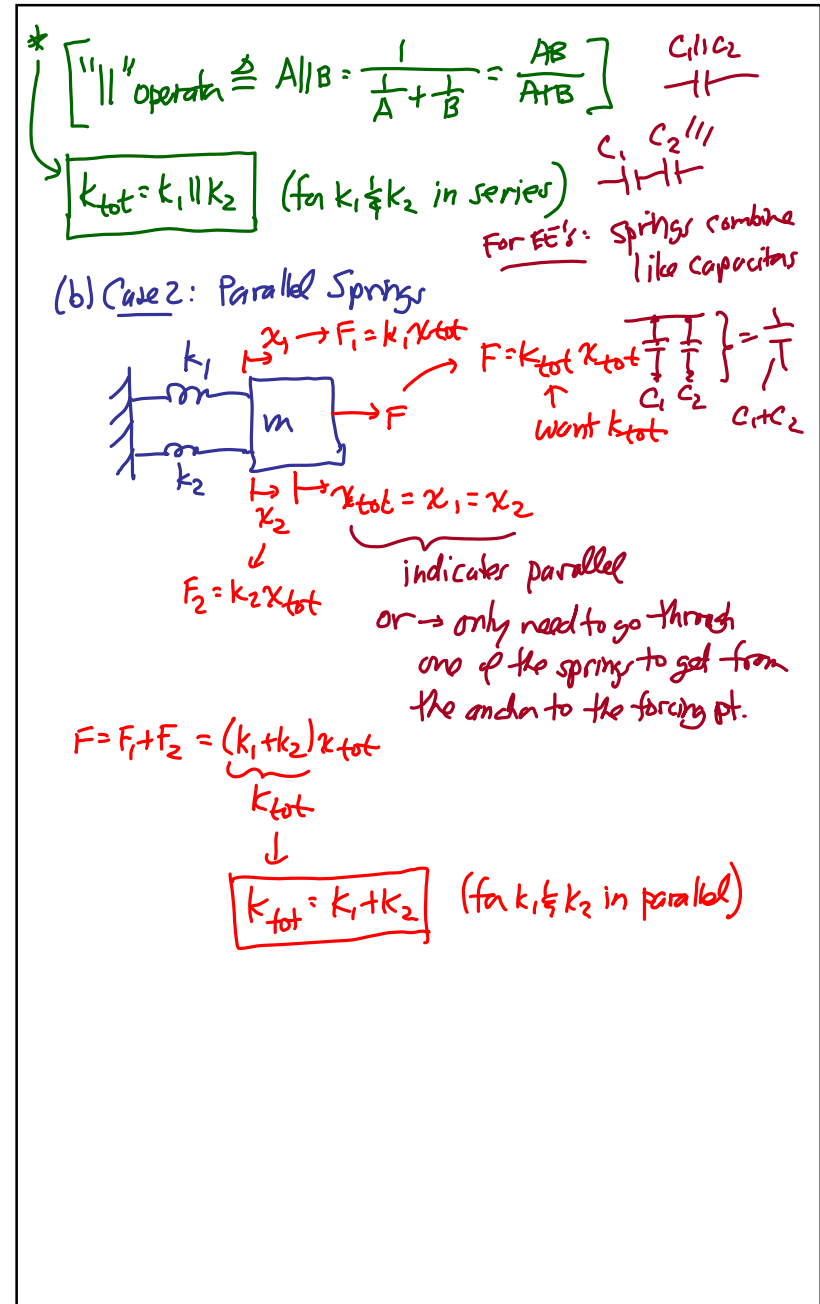 * ["||" operator ≜ A||B = 1/(1/A + 1/B) = AB/(A+B)]
C₁||C₂
C₁ C₂ |||
k_tot = k₁||k₂ (for k₁ & k₂ in series)
For EE's: springs combine
like capacitors
(b) Case 2: Parallel Springs
x₁ → F₁ = k₁x_tot
k₁
F = k_tot x_tot
} =
m
→ F
↑
C₁ C₂
C₁+C₂
want k_tot
k₂
x_tot = x₁ = x₂
x₂
indicates parallel
F₂ = k₂x_tot
or → only need to go through
one of the springs to get from
the anchor to the forcing pt.
F = F₁+F₂ = (k₁+k₂)x_tot
k_tot
↓
k_tot = k₁+k₂ (for k₁ & k₂ in parallel)